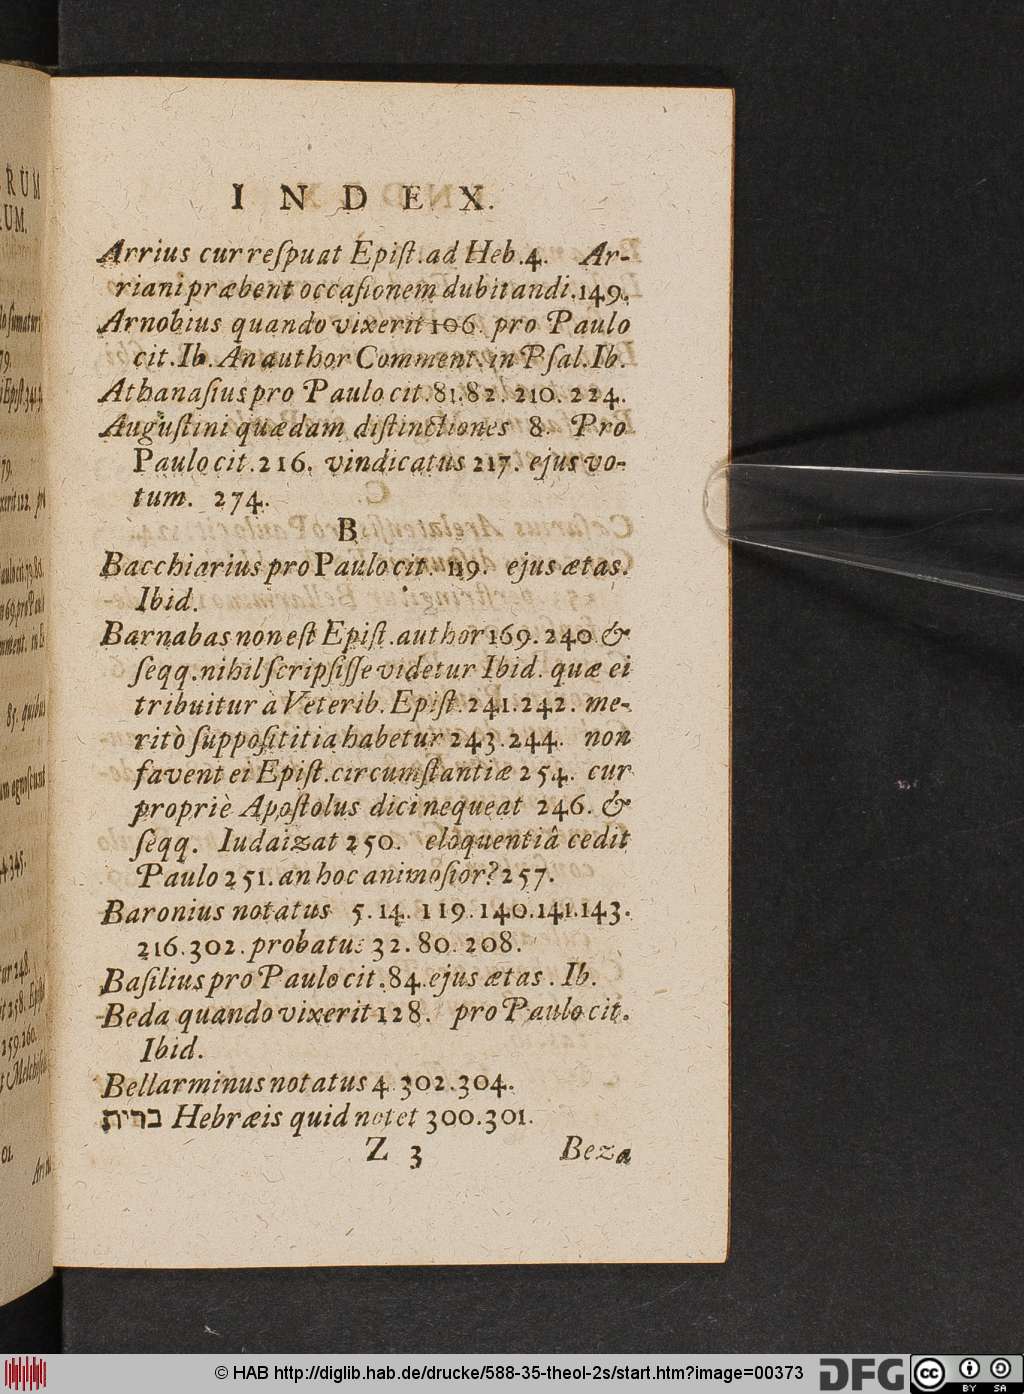 INDEX.
Arrius cur reſpuat Epiſt. ad Heb. 4. Ar-
riani præbent occaſionem dubitandi. 149.
Arnobius quando vixerit 106. pro Paulo
cit. Ib. An author Comment. in Pſal. Ib.
Athanaſius pro Paulo cit. 81. 82. 210. 224.
Auguſtini quædam diſtinctiones 8. Pro
Paulo cit. 216. vindicatus 217. ejus vo-
tum. 274.
B
Bacchiarius pro Paulo cit. 119. ejus ætas.
Ibid.
Barnabas non eſt Epiſt. author 169. 240. &
ſeqq. nihil ſcripſiſſe videtur Ibid. quæ ei
tribuitur à Veterib. Epiſt. 241. 242. me-
ritò ſuppoſititia habetur 243. 244. non
favent ei Epiſt. circumſtantiæ 254. cur
propriè Apoſtolus dici nequeat 246. &
ſeqq. Iudaizat 250. eloquentiâ cedit
Paulo 251. an hoc animoſior? 257.
Baronius notatus 5. 14. 119. 140. 141. 143.
216. 302. probatus 32. 80. 208.
Baſilius pro Paulo cit. 84. ejus ætas. Ib.
Beda quando vixerit 128. pro Paulo cit.
Ibid.
Bellarminus notatus 4. 302. 304.
ברית Hebræis quid notet 300. 301.
Z 3 Beza
© HAB http://diglib.hab.de/drucke/588-35-theol-2s/start.htm?image=00373
DFG
cc BY SA